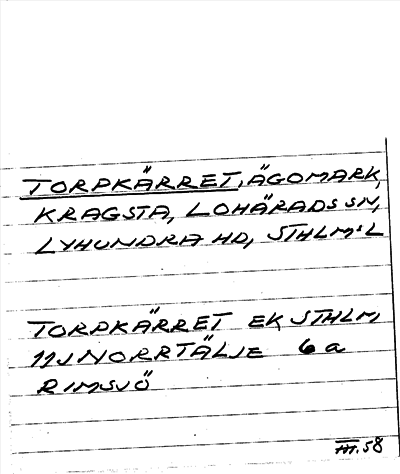 TORPKÄRRET, ÄGOMARK,
KRAGSTA, LOHÄRADS SN,
LYHUNDRA HD, STHLM:S L
TORPKÄRRET EK STHLM
11J NORRTÄLJE 6 a
RIMSJÖ
III.58